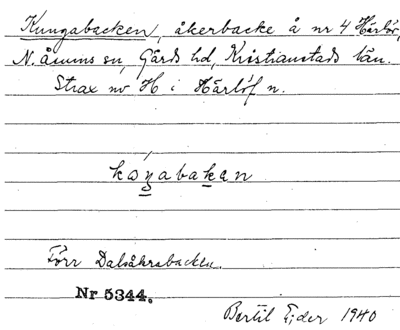 Kungabacken, åkerbacke å nr 4 Härlöv,
N. Åsums sn, Gärds hd, Kristianstads län.
Strax nv H i Härlöf n.
kɔŋabakan
Förr Dalsåkrabacken.
Nr 5344.
Bertil Ejder 1940